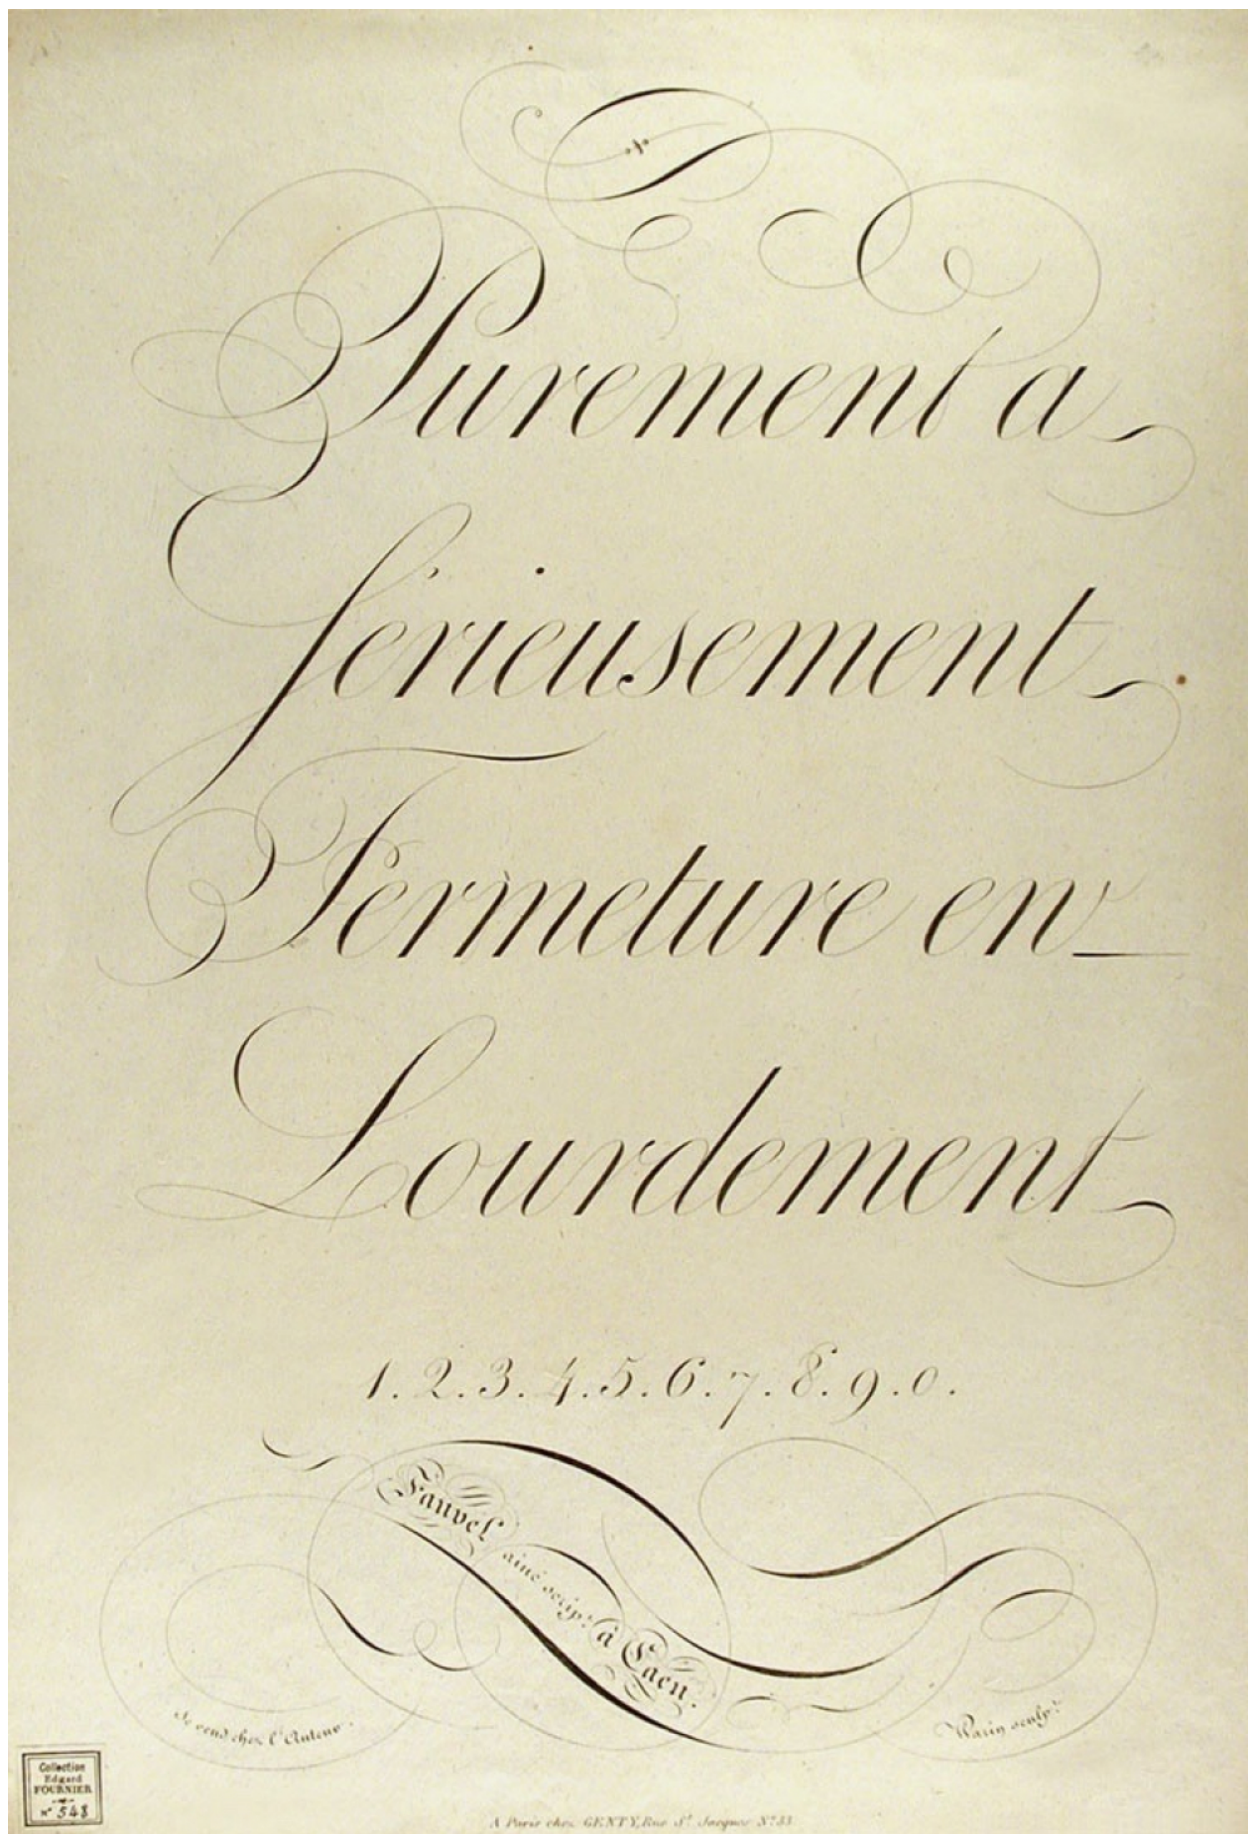 Purement a
sérieusement
Fermeture en
Lourdement
1. 2. 3. 4. 5. 6. 7. 8. 9. 0.
Fauvel
ainé scrip.t
à Caen.
Se vend chez l'Auteur.
Warin sculp.t
Collection
Edgard
FOURNIER
N° 548
A Paris chez GENTY, Rue St. Jacques N° 33.